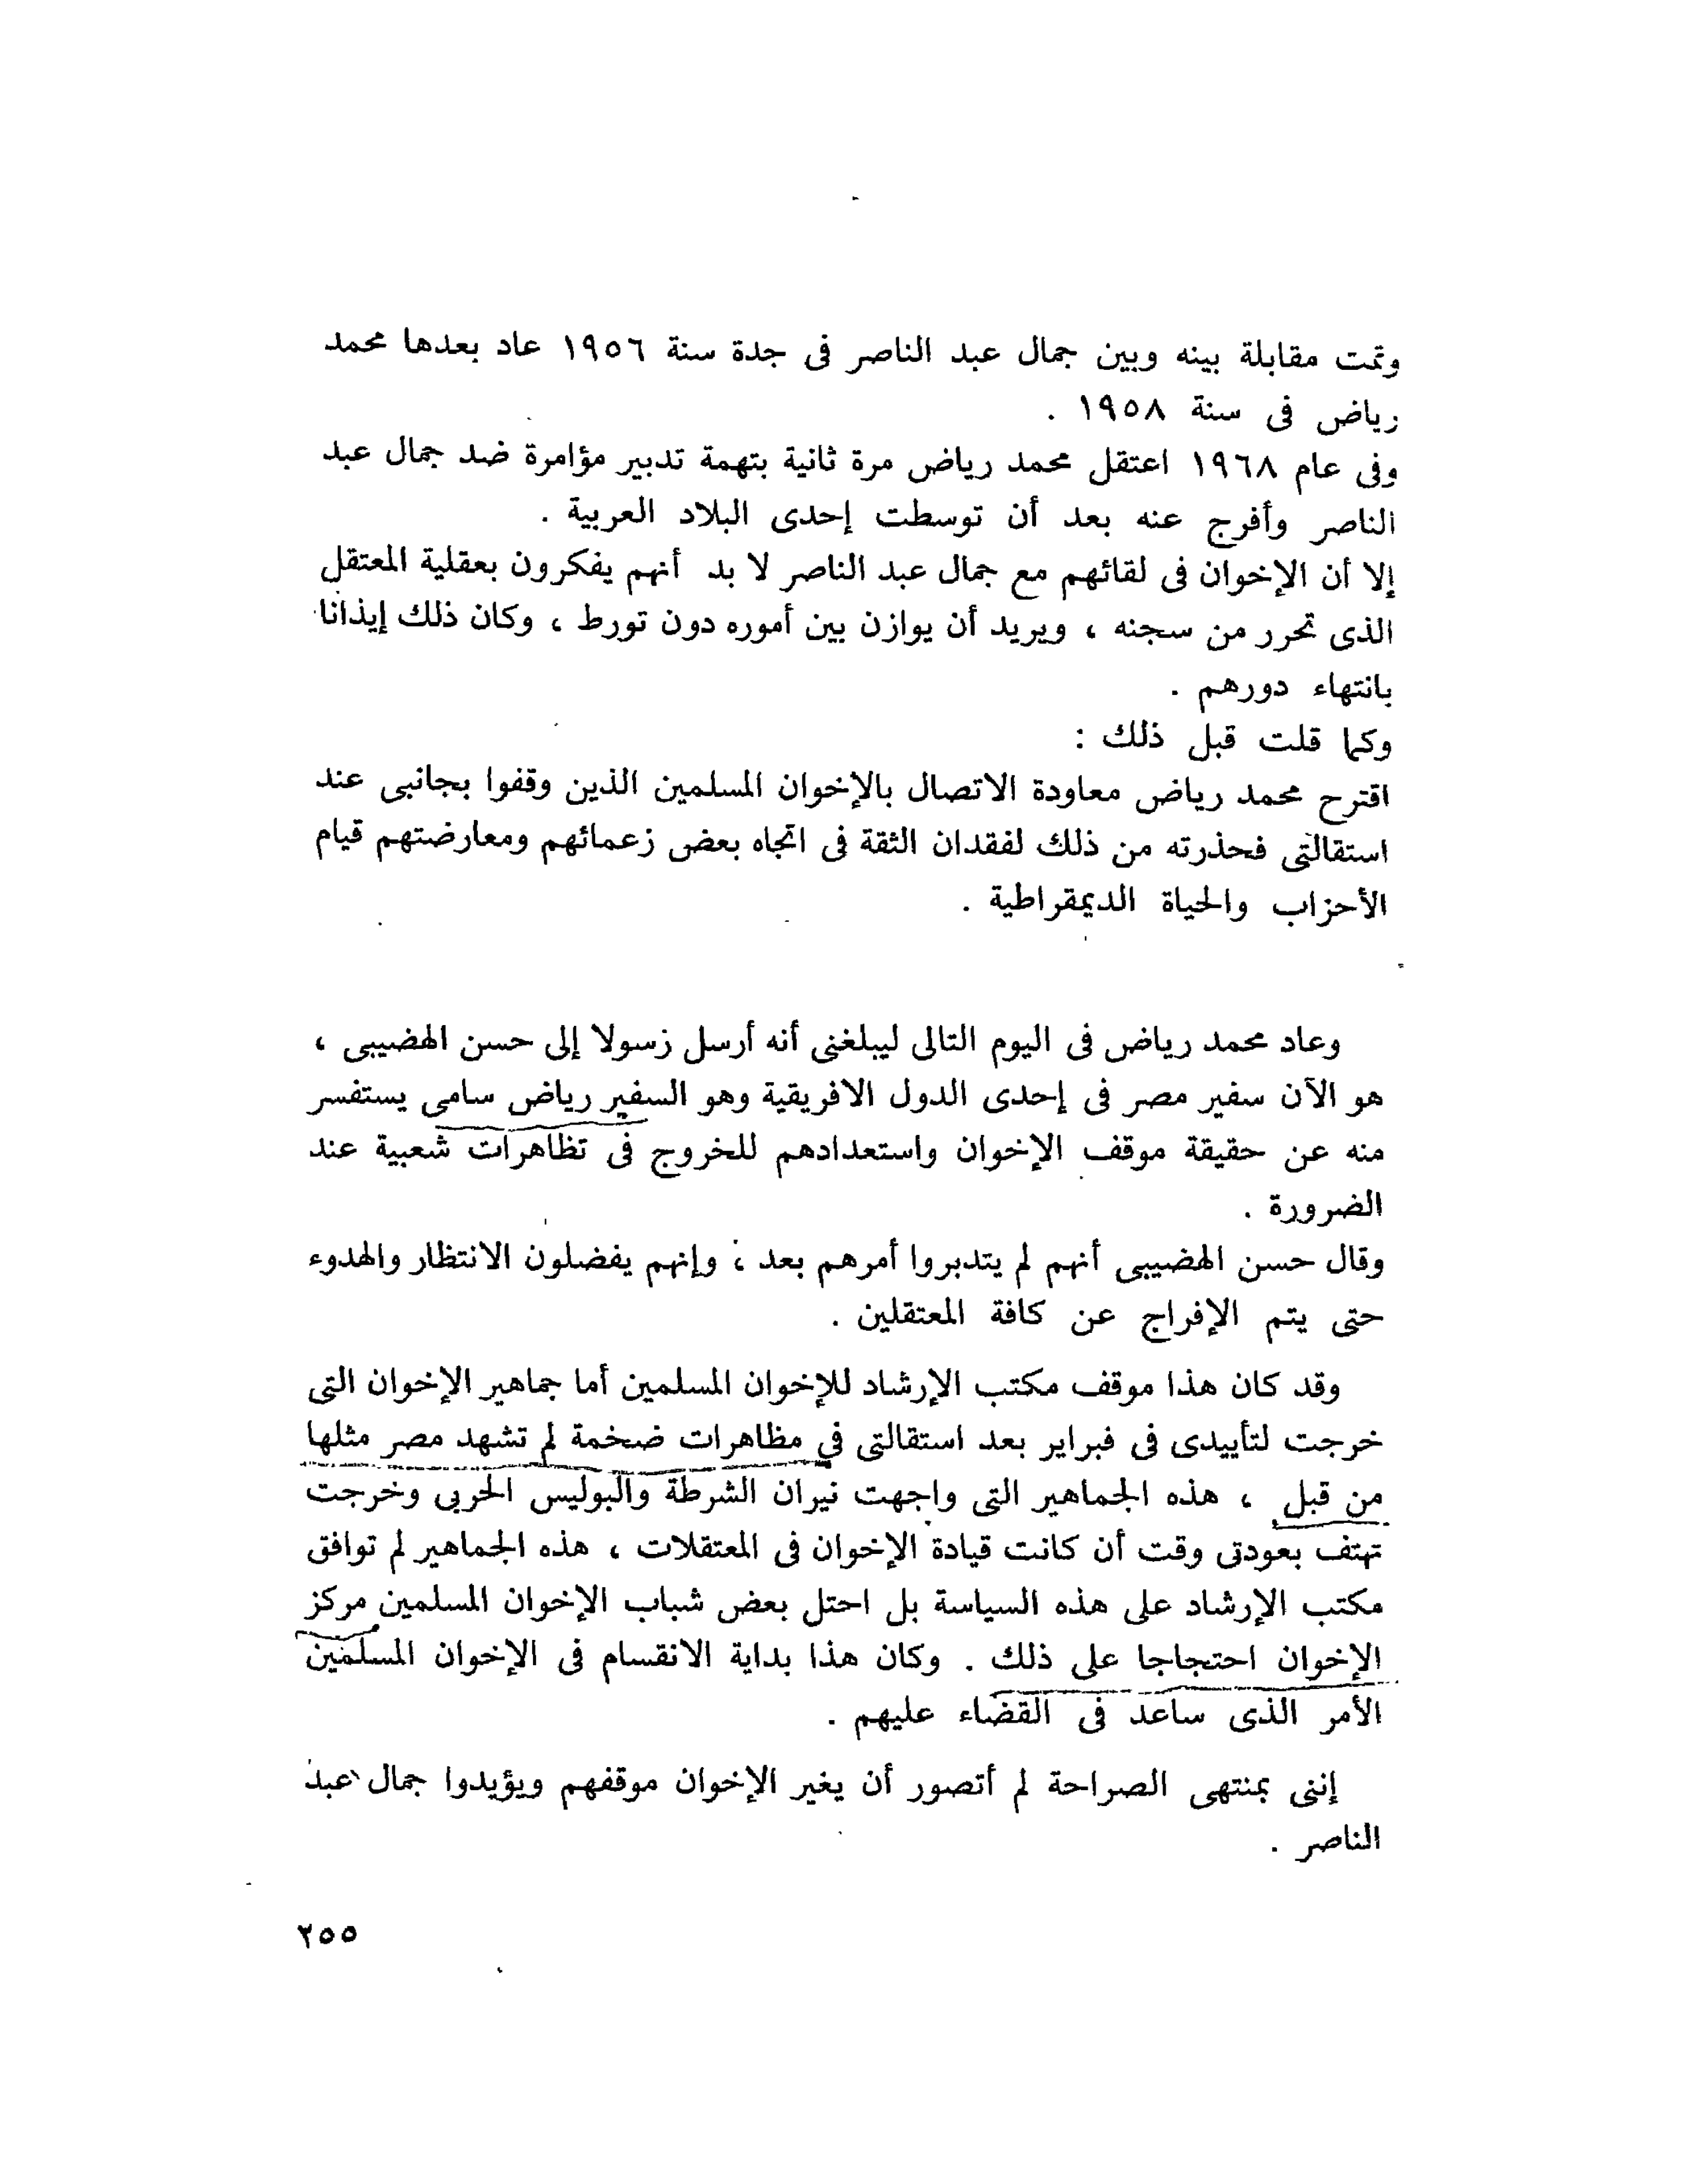 وتمت مقابلة بينه وبين جمال عبد الناصر فى جدة سنة ١٩٥٦ عاد بعدها محمد
رياض فى سنة ١٩٥٨ .
وفى عام ١٩٦٨ اعتقل محمد رياض مرة ثانية بتهمة تدبير مؤامرة ضد جمال عبد
الناصر وأفرج عنه بعد أن توسطت إحدى البلاد العربية .
إلا أن الإخوان فى لقائهم مع جمال عبد الناصر لا بد أنهم يفكرون بعقلية المعتقل
الذى تحرر من سجنه ، ويريد أن يوازن بين أموره دون تورط ، وكان ذلك إيذانا
بانتهاء دورهم .
وكما قلت قبل ذلك :
اقترح محمد رياض معاودة الاتصال بالإخوان المسلمين الذين وقفوا بجانبى عند
استقالتى فحذرته من ذلك لفقدان الثقة فى اتجاه بعض زعمائهم ومعارضتهم قيام
الأحزاب والحياة الديمقراطية .
وعاد محمد رياض فى اليوم التالى ليبلغنى أنه أرسل رسولا إلى حسن الهضيبى ،
هو الآن سفير مصر فى إحدى الدول الافريقية وهو السفير رياض سامى يستفسر
منه عن حقيقة موقف الإخوان واستعدادهم للخروج فى تظاهرات شعبية عند
الضرورة .
وقال حسن الهضيبى أنهم لم يتدبروا أمرهم بعد ، وإنهم يفضلون الانتظار والهدوء
حتى يتم الإفراج عن كافة المعتقلين .
وقد كان هذا موقف مكتب الإرشاد للإخوان المسلمين أما جماهير الإخوان التى
خرجت لتأييدى فى فبراير بعد استقالتى فى مظاهرات ضخمة لم تشهد مصر مثلها
من قبل ، هذه الجماهير التى واجهت نيران الشرطة والبوليس الحربى وخرجت
تهتف بعودتى وقت أن كانت قيادة الإخوان فى المعتقلات ، هذه الجماهير لم توافق
مكتب الإرشاد على هذه السياسة بل احتل بعض شباب الإخوان المسلمين مركز
الإخوان احتجاجا على ذلك . وكان هذا بداية الانقسام فى الإخوان المسلمين
الأمر الذى ساعد فى القضاء عليهم .
إننى بمنتهى الصراحة لم أتصور أن يغير الإخوان موقفهم ويؤيدوا جمال عبد
الناصر .
٢٥٥